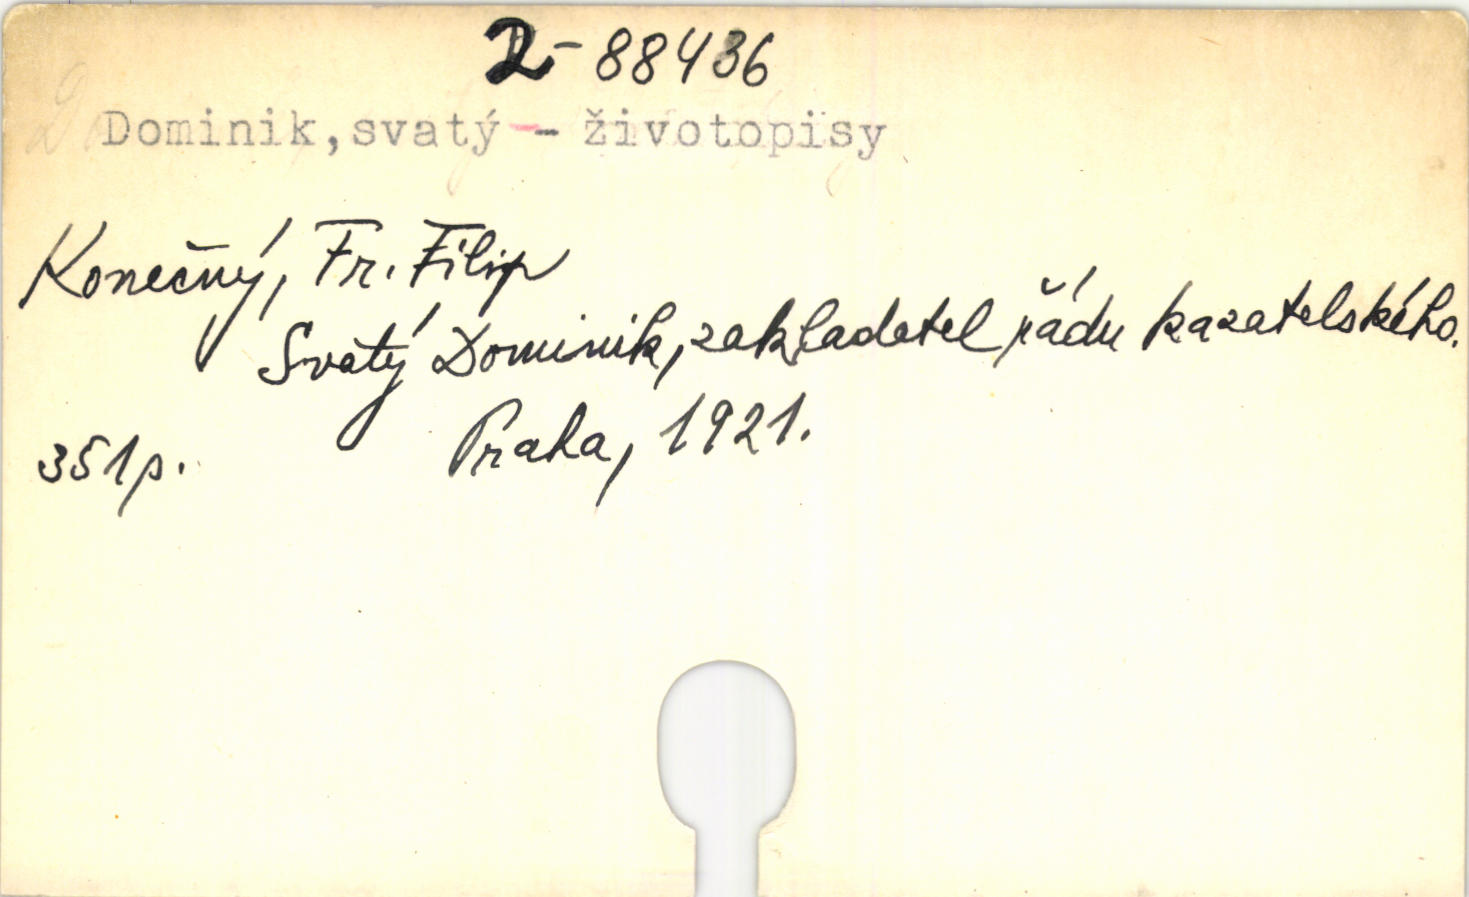 2-88436
Dominik,svatý - životopisy
Konečný, Fr. Filip
Svatý Dominik, zakladatel řádu kazatelského.
Praha, 1921.
351p.